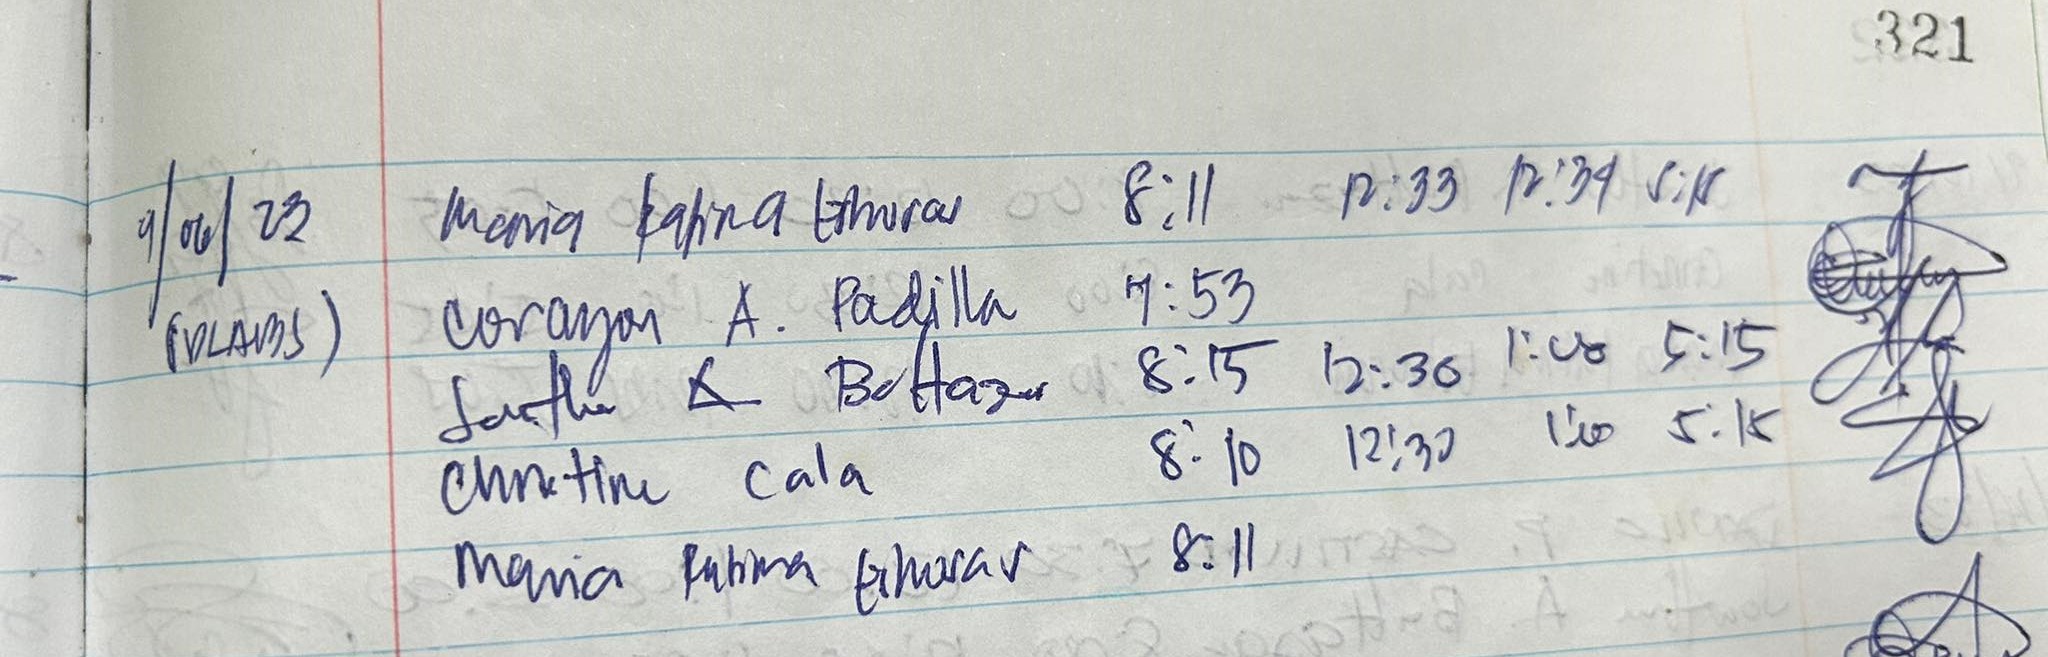 321
9/06/23 Maria 8:11 12:33 12:34 5:15
Corazon A. Padilla 7:53
(VLABS)
A Baltazar 8:15 12:30 1:00 5:15
Christine Cala 8:10 12:30 1:00 5:15
Maria 8:11